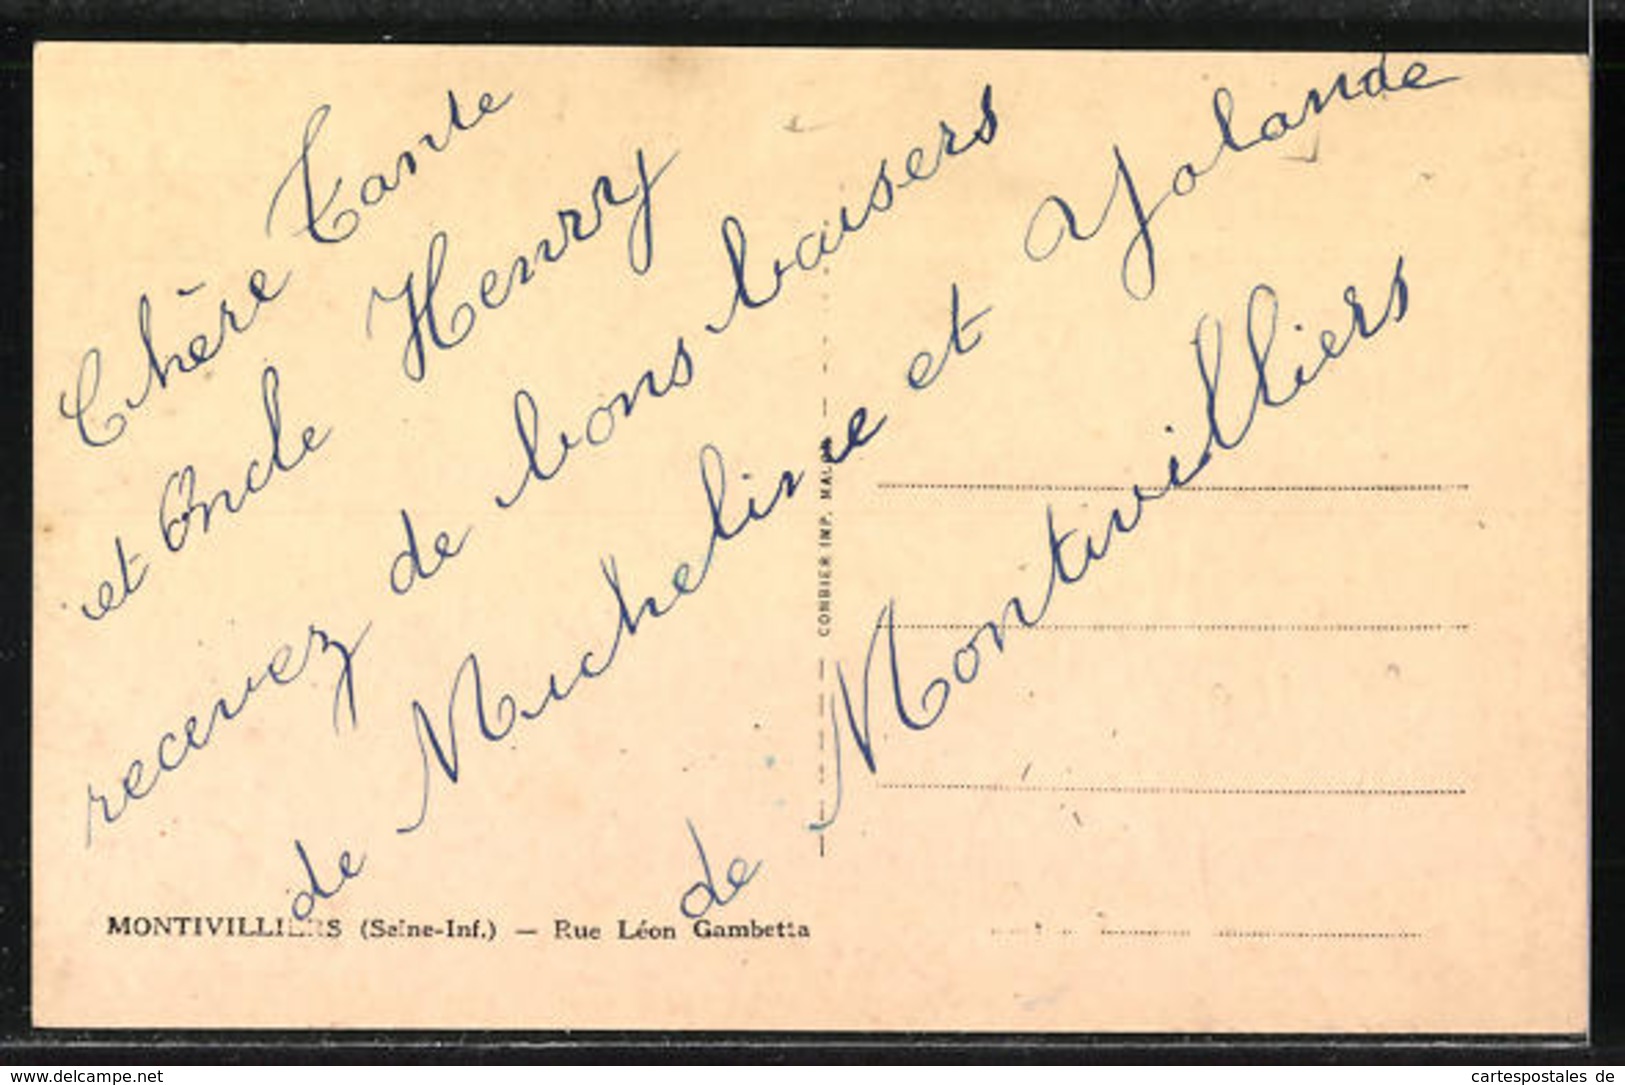 Chère Tante
et Oncle Henry
recevez de bons baisers
de Micheline et Yolande
de Montivilliers
COMBIER IMP. MACON
MONTIVILLIERS (Seine-Inf.) — Rue Léon Gambetta
www.delcampe.net
cartespostales de